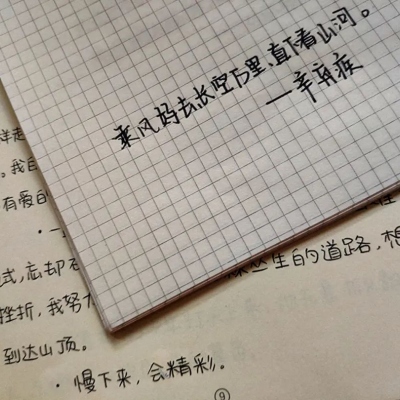 乘风好去长空万里,直下看山河。
——辛弃疾
。我自
有爱的
·一
式,忘却 丛生的道路,想
挫折,我努
到达山顶。
·慢下来,会精彩。
⑨